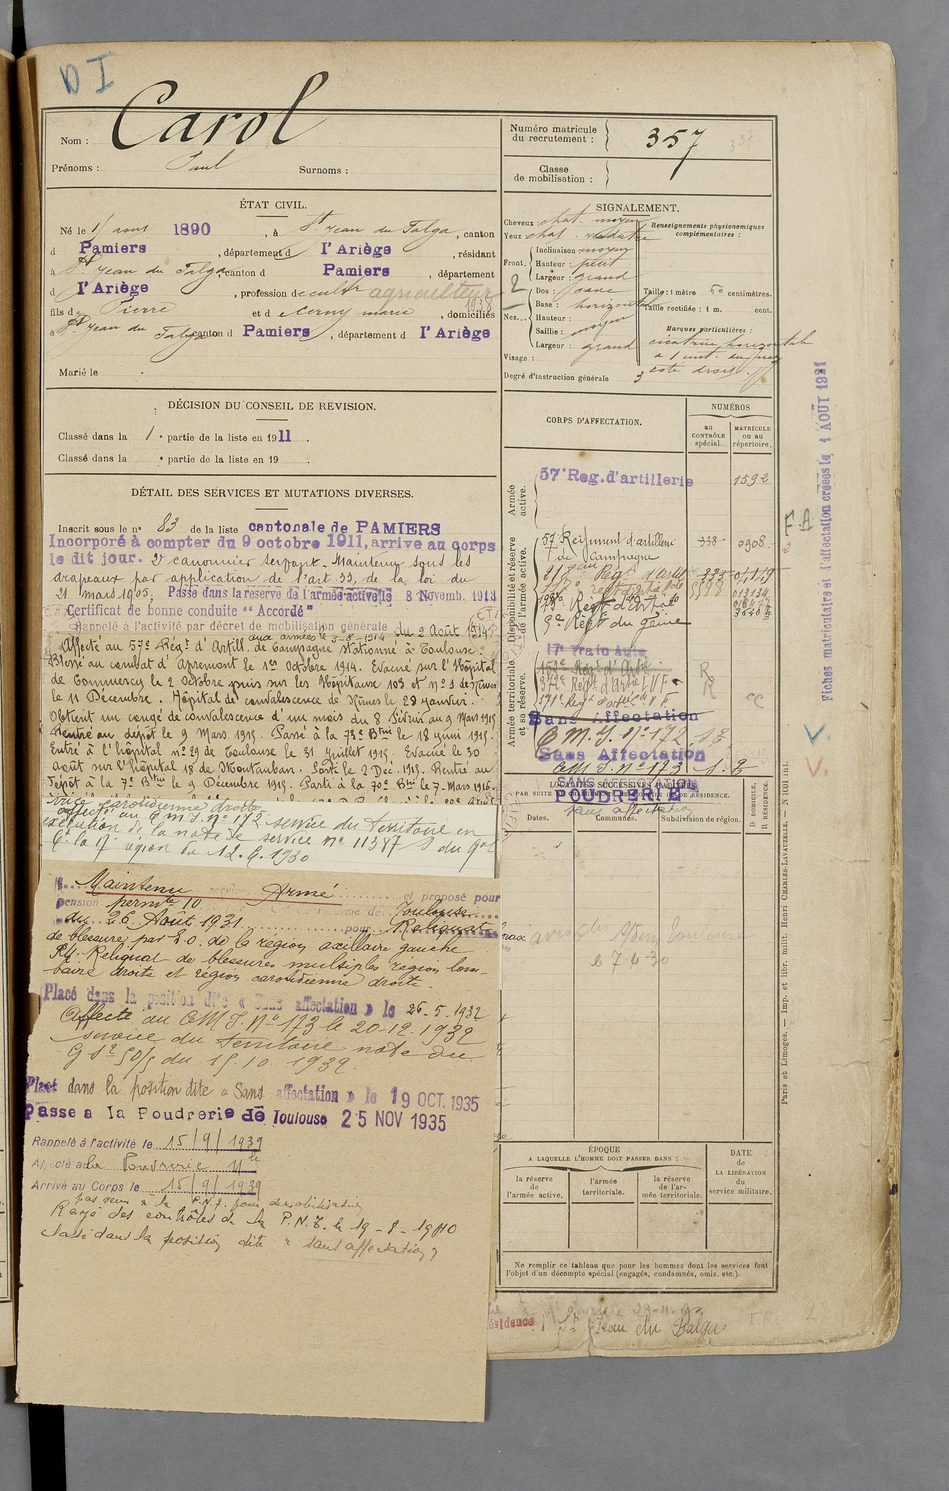 D I
Nom : Carol
Prénoms : Paul Surnoms :
ÉTAT CIVIL.
Né le 1 août 1890, à St Jean du Falga, canton
d Pamiers, département d l'Ariège, résidant
à St Jean du Falga, canton d Pamiers, département
d l'Ariège, profession de cultr agriculteur
1938
fils de Pierre et d marie, domiciliés
à St Jean du Falga canton d Pamiers, département d l'Ariège
Marié le
DÉCISION DU CONSEIL DE REVISION.
Classé dans la 1e partie de la liste en 1911.
Classé dans la e partie de la liste en 19 .
DÉTAIL DES SERVICES ET MUTATIONS DIVERSES.
Inscrit sous le n° 83 de la liste cantonale de PAMIERS
Incorporé à compter du 9 octobre 1911, arrive au corps
le dit jour. 2e canonnier servant. Maintenu sous les
drapeaux par application de l'art 33, de la loi du
21 mars 1905. Passe dans la reserve de l'armée active le 8 Novemb. 1913
Certificat de bonne conduite "Accordé"
Rappelé à l'activité par décret de mobilisation générale du 2 Août 1914
aux armées le 3-8-1914
Affecté au 57e Régt d'Artill. de Campagne stationné à Toulouse.
Blessé au combat d'Apremont le 1er Octobre 1914. Evacué sur l'Hôpital
de Commercy le 2 Octobre puis sur les Hôpitaux 103 et n° 1 de Nîmes
le 11 Décembre. Hôpital de convalescence de Nîmes le 28 janvier.
Obtient un congé de convalescence d'un mois du 8 Février au 9 Mars 1915
Rentré au dépôt le 9 Mars 1915. Passé à la 73e Btrie le 18 juin 1915.
Entré à l'hôpital n° 29 de Toulouse le 31 Juillet 1915. Evacué le 30
Août sur l'hôpital 18 de Montauban. Sorti le 2 Déc. 1915. Rentré au
Dépôt à la 7e Btrie le 9 Décembre 1915. Parti à la 70e Btrie le 7 Mars 1916.
carotidienne droite
affecté au C M J. N° 172 service du territoire en
exécution de la note de service n° 11387 S du Gal
Ct la 17e région du 12.6.1930
Maintenu service Armé et proposé pour
pension permte 10 de Toulouse
du 26 Août 1931 pour Reliquat
de blessure par E.O. de la région axillaire gauche
Reliquat de blessures multiples région lom-
baire droite et région carotidienne droite.
Placé dans la position dite « Sans affectation » le 26-5-1932
Affecté au C M J. N° 173 le 20-12-1932
service du territoire note du
du 15.10.1932
Placé dans la position dite « Sans affectation » le 19 OCT. 1935
Passe a la Poudrerie de Toulouse 25 NOV 1935
Rappelé à l'activité le 15/9/1939
Affecté à la Poudrerie
Arrivé au Corps le 15/9/1939
pas venu à la P.N.T. pour démobilisation
Rayé des contrôles de la P.N.T. le 19-8-1940
classé dans la position dite "sans affectation"
Numéro matricule
du recrutement : 357
Classe
de mobilisation :
SIGNALEMENT.
Cheveux : chat. moyen
Yeux chat.
Front. Inclinaison moyen
Hauteur : petit
Largeur : grand
2
Nez. Dos : cave
Base : horizontal
Hauteur :
Saillie : moyen
Largeur : grand
Visage :
Renseignements physionomiques
complémentaires :
Taille : 1 mètre 60 centimètres.
Taille rectifiée : 1 m. cent.
Marques particulières :
cicatrice horizontale
à 1 cent. du nez
côté droit.
Degré d'instruction générale 3
CORPS D'AFFECTATION.
NUMÉROS
AU CONTRÔLE spécial.
MATRICULE ou au répertoire.
Armée active.
57e Reg. d'artillerie 1592
Disponibilité et réserve de l'armée active.
57 Régiment d'artillerie 338 0908
de Campagne
Régt d'Art.
Régt du génie
Armée territoriale et sa réserve.
17e Train Auto
Sans Affectation
C M. J. N° 172
Sans Affectation
C M J. N° 173
SANS AFFECTATION
POUDRERIE
sans affectation
LOCALITÉS SUCCESSIVES HABITÉES
PAR SUITE DE CHANGEMENT DE DOMICILE OU DE RÉSIDENCE.
Dates. Communes. Subdivision de région. D DOMICILE, R RÉSIDENCE.
Toulouse
le 7-4-30
ÉPOQUE
A LAQUELLE L'HOMME DOIT PASSER DANS :
la réserve de l'armée active.
l'armée territoriale.
la réserve de l'armée territoriale.
DATE
DE LA LIBÉRATION
du service militaire.
Ne remplir ce tableau que pour les hommes dont les services font
l'objet d'un décompte spécial (engagés, condamnés, omis, etc.).
ésidence St Jean du Falga
Fiches matriculaire et d'affectation créées le 1 AOÛT 1921
F.A
R
R
CC
V.
V.
Paris et Limoges. — Imp. et libr. milit. Henri CHARLES-LAVAUZELLE. — N° 1001 int.